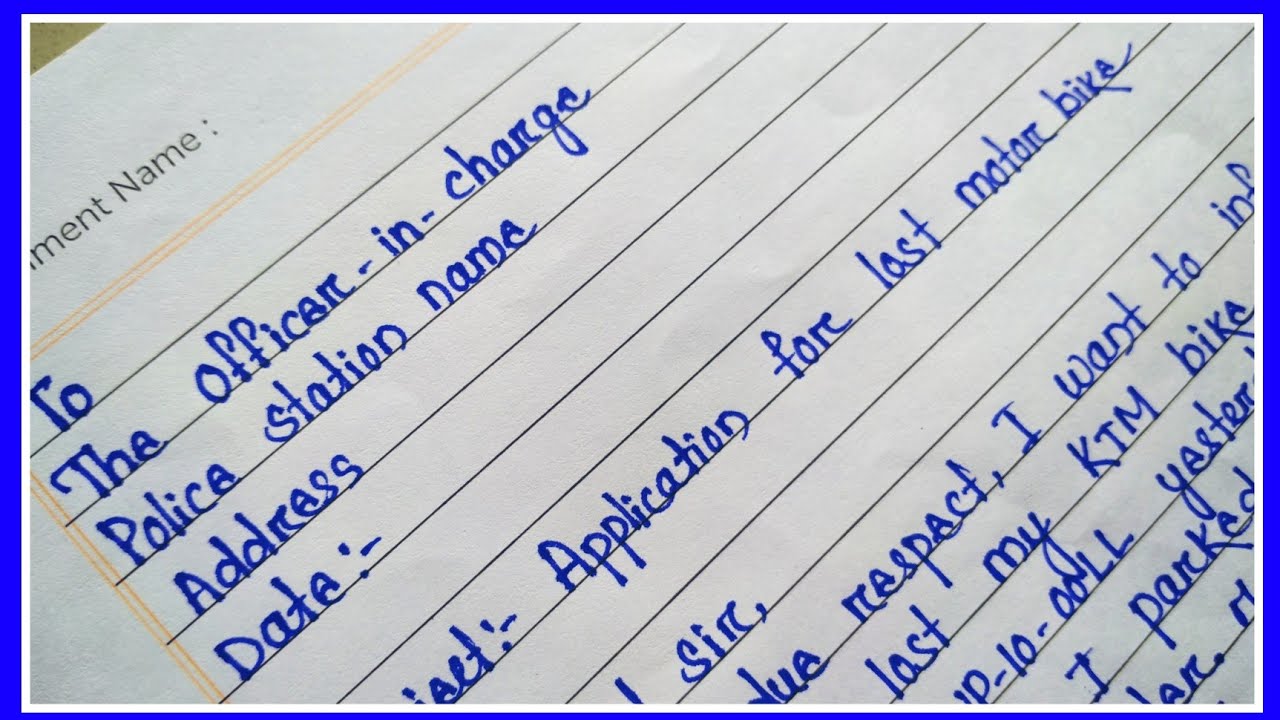 ment Name :
To
The Officer-in-charge
Police station name
Address
Date:-
ject:- Application for lost motor bike
sir,
due respect, I want to inf
lost my KTM bike
P-10-00LL yester
I parked